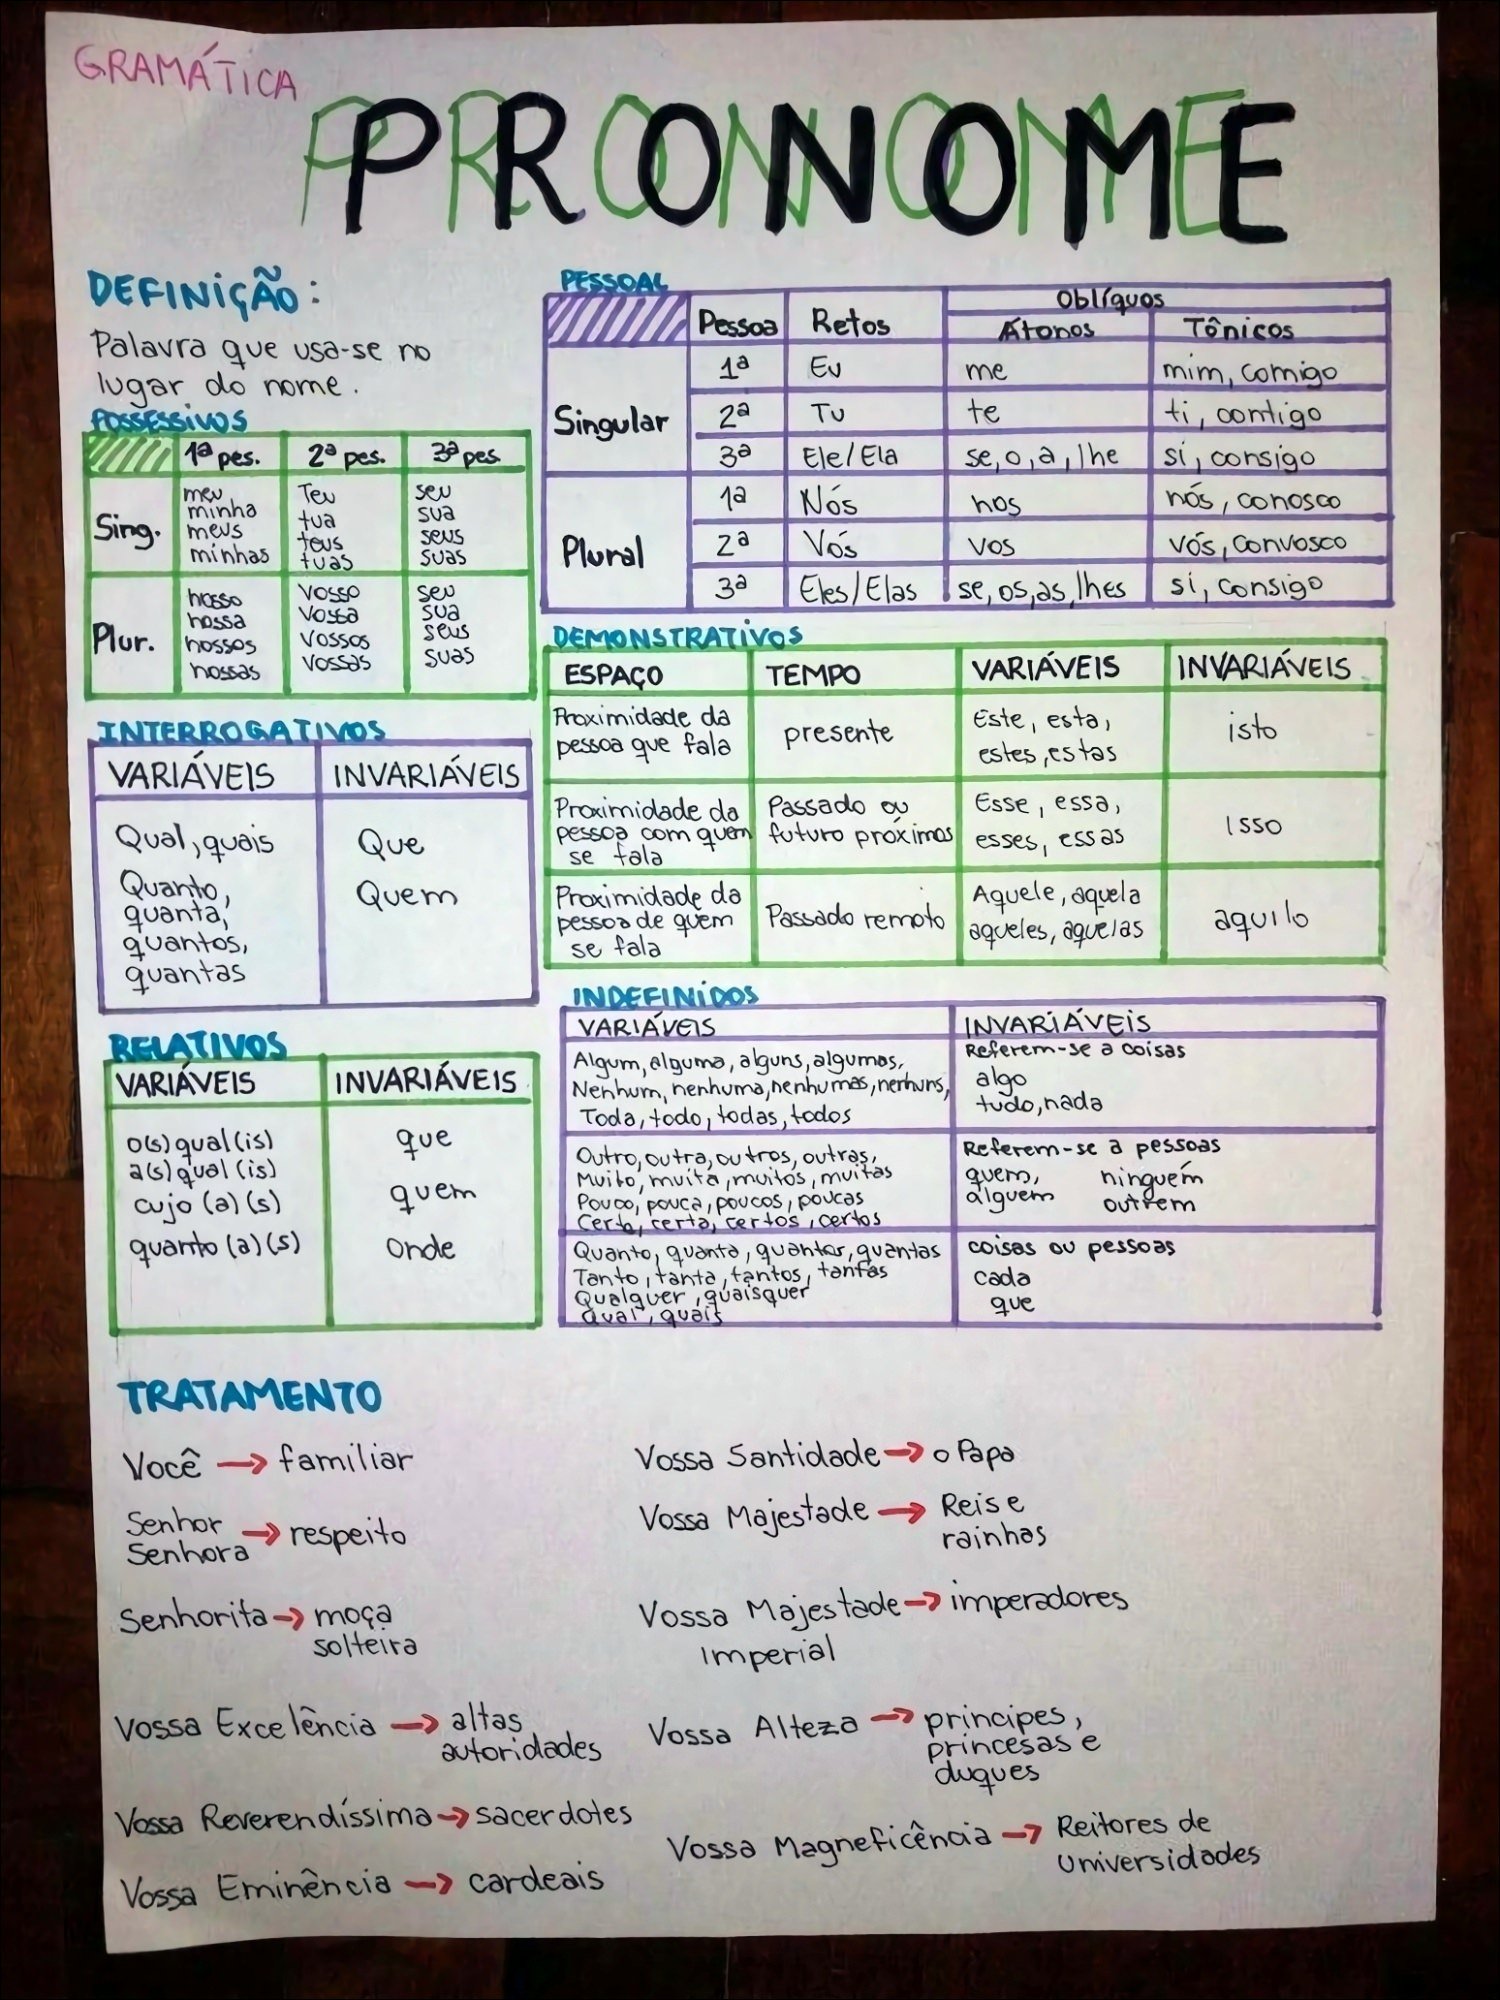 GRAMÁTICA
PRONOME
DEFINIÇÃO:
Palavra que usa-se no
lugar do nome.
POSSESSIVOS
1ª pes. 2ª pes. 3ª pes.
Sing.
meu Teu seu
minha tua sua
meus teus seus
minhas tuas suas
Plur.
nosso vosso seu
nossa vossa sua
nossos vossos seus
nossas vossas suas
PESSOAL
Oblíquos
Pessoa Retos Átonos Tônicos
Singular
1ª Eu me mim, comigo
2ª Tu te ti, contigo
3ª Ele/Ela se, o, a, lhe si, consigo
Plural
1ª Nós nos nós, conosco
2ª Vós vos vós, convosco
3ª Eles/Elas se, os, as, lhes si, consigo
DEMONSTRATIVOS
ESPAÇO TEMPO VARIÁVEIS INVARIÁVEIS
Proximidade da
pessoa que fala
presente
Este, esta,
estes, estas
isto
Proximidade da
pessoa com quem
se fala
Passado ou
futuro próximos
Esse, essa,
esses, essas
Isso
Proximidade da
pessoa de quem
se fala
Passado remoto
Aquele, aquela
aqueles, aquelas
aquilo
INTERROGATIVOS
VARIÁVEIS INVARIÁVEIS
Qual, quais Que
Quanto, Quem
quanta,
quantos,
quantas
RELATIVOS
VARIÁVEIS INVARIÁVEIS
o(s) qual(is) que
a(s) qual(is)
cujo (a)(s) quem
quanto (a)(s) onde
INDEFINIDOS
VARIÁVEIS INVARIÁVEIS
Algum, alguma, alguns, algumas,
Nenhum, nenhuma, nenhumas, nenhuns,
Toda, todo, todas, todos
Referem-se a coisas
algo
tudo, nada
Outro, outra, outros, outras,
Muito, muita, muitos, muitas
Pouco, pouca, poucos, poucas
Certo, certa, certos, certos
Referem-se a pessoas
quem, ninguém
alguem outrem
Quanto, quanta, quantos, quantas
Tanto, tanta, tantos, tantas
Qualquer, quaisquer
Qual, quais
coisas ou pessoas
cada
que
TRATAMENTO
Você → familiar
Senhor
Senhora → respeito
Senhorita → moça
solteira
Vossa Excelência → altas
autoridades
Vossa Reverendíssima → sacerdotes
Vossa Eminência → cardeais
Vossa Santidade → o Papa
Vossa Majestade → Reis e
rainhas
Vossa Majestade → imperadores
Imperial
Vossa Alteza → principes,
princesas e
duques
Vossa Magneficência → Reitores de
universidades